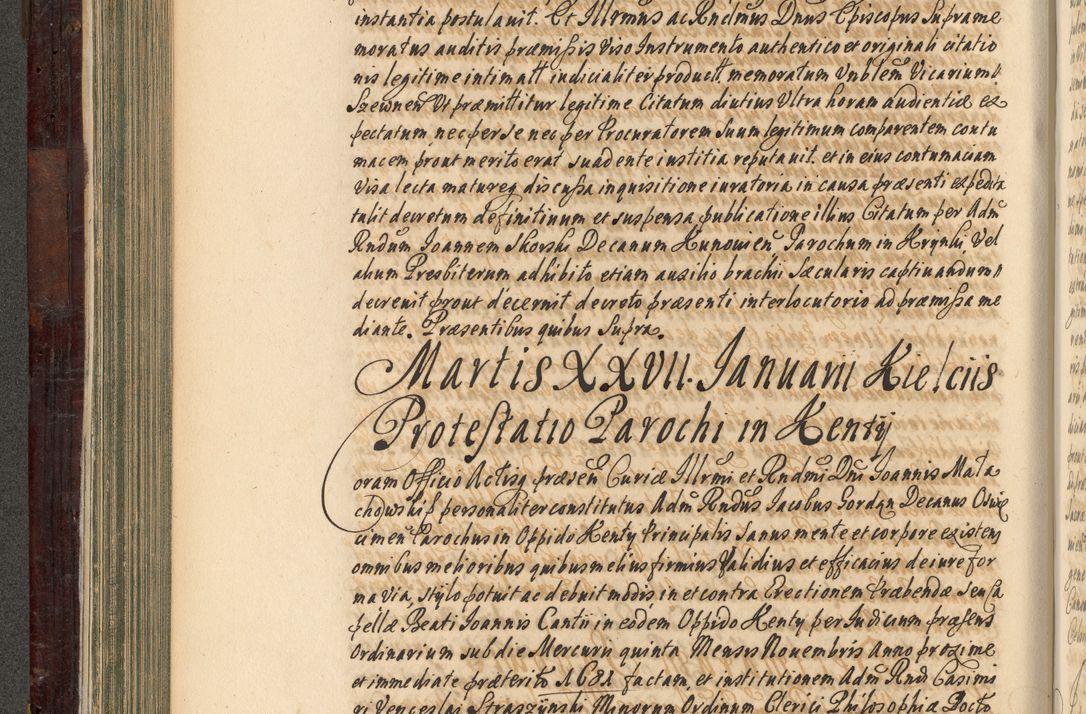 instantia postulavit. Et Illrmus ac Rndmus Dnus Episcopus supra me
moratus auditis præmissis viso Instrumento authentico et originali citatio
nis legitime intimatt iudicialiter product, memoratum Vnblem Vicarium
Szewnen Vt præmittitur legitime Citatum diutius Vltra horam audientiæ ex
pectatum nec per se nec per Procuratorem suum legitimum comparentem contu
macem prout merito erat suadente iustitia reputauit. et in eius contumaciam
Visa lecta matureq discussa inquisitione iuratoria in causa præsenti expedita
tulit decretum definitiuum et suspensa publicatione illius Citatum per Adm
Rndum Joannem Skorski Decanum Kunouien Parochum in Krynki Vel
alium Presbiterum adhibito etiam auxilio brachii sæcularis captiuandum
decreuit prout decernit decreto præsenti interlocutorio ad præmissa me
diante. Præsentibus quibus supra.
Martis XXVII. Januarii Kielciis
Protestatio Parochi in Kenty
Coram Officio Actisq præsen Curiæ Illrmi et Rndmi Dni Joannis Mala
chowski personaliter constitutus Adm Rndus Jacobus Gordan Decanus Osvie
cimen Parochus in Oppido Kenty Principalis sanus mente et corpore existen
omnibus melioribus quibus melius firmius Validius et efficacius de iure for
ma via stylo potuit ac debuit modis in et contra Erectionem Præbendæ seu Ca
pellæ Beati Joannis Cantii in eodem Oppido Kenty per Iudicium præsens
Ordinarium sub die Mercurii quinta Mensis Nouembris Anno proxime
et immediate præterito 1681 factam, et institutionem Adm Rndi Casimi
ri Venceslai Straszynski Minorum Ordinum Clerici Philosophiæ Docto